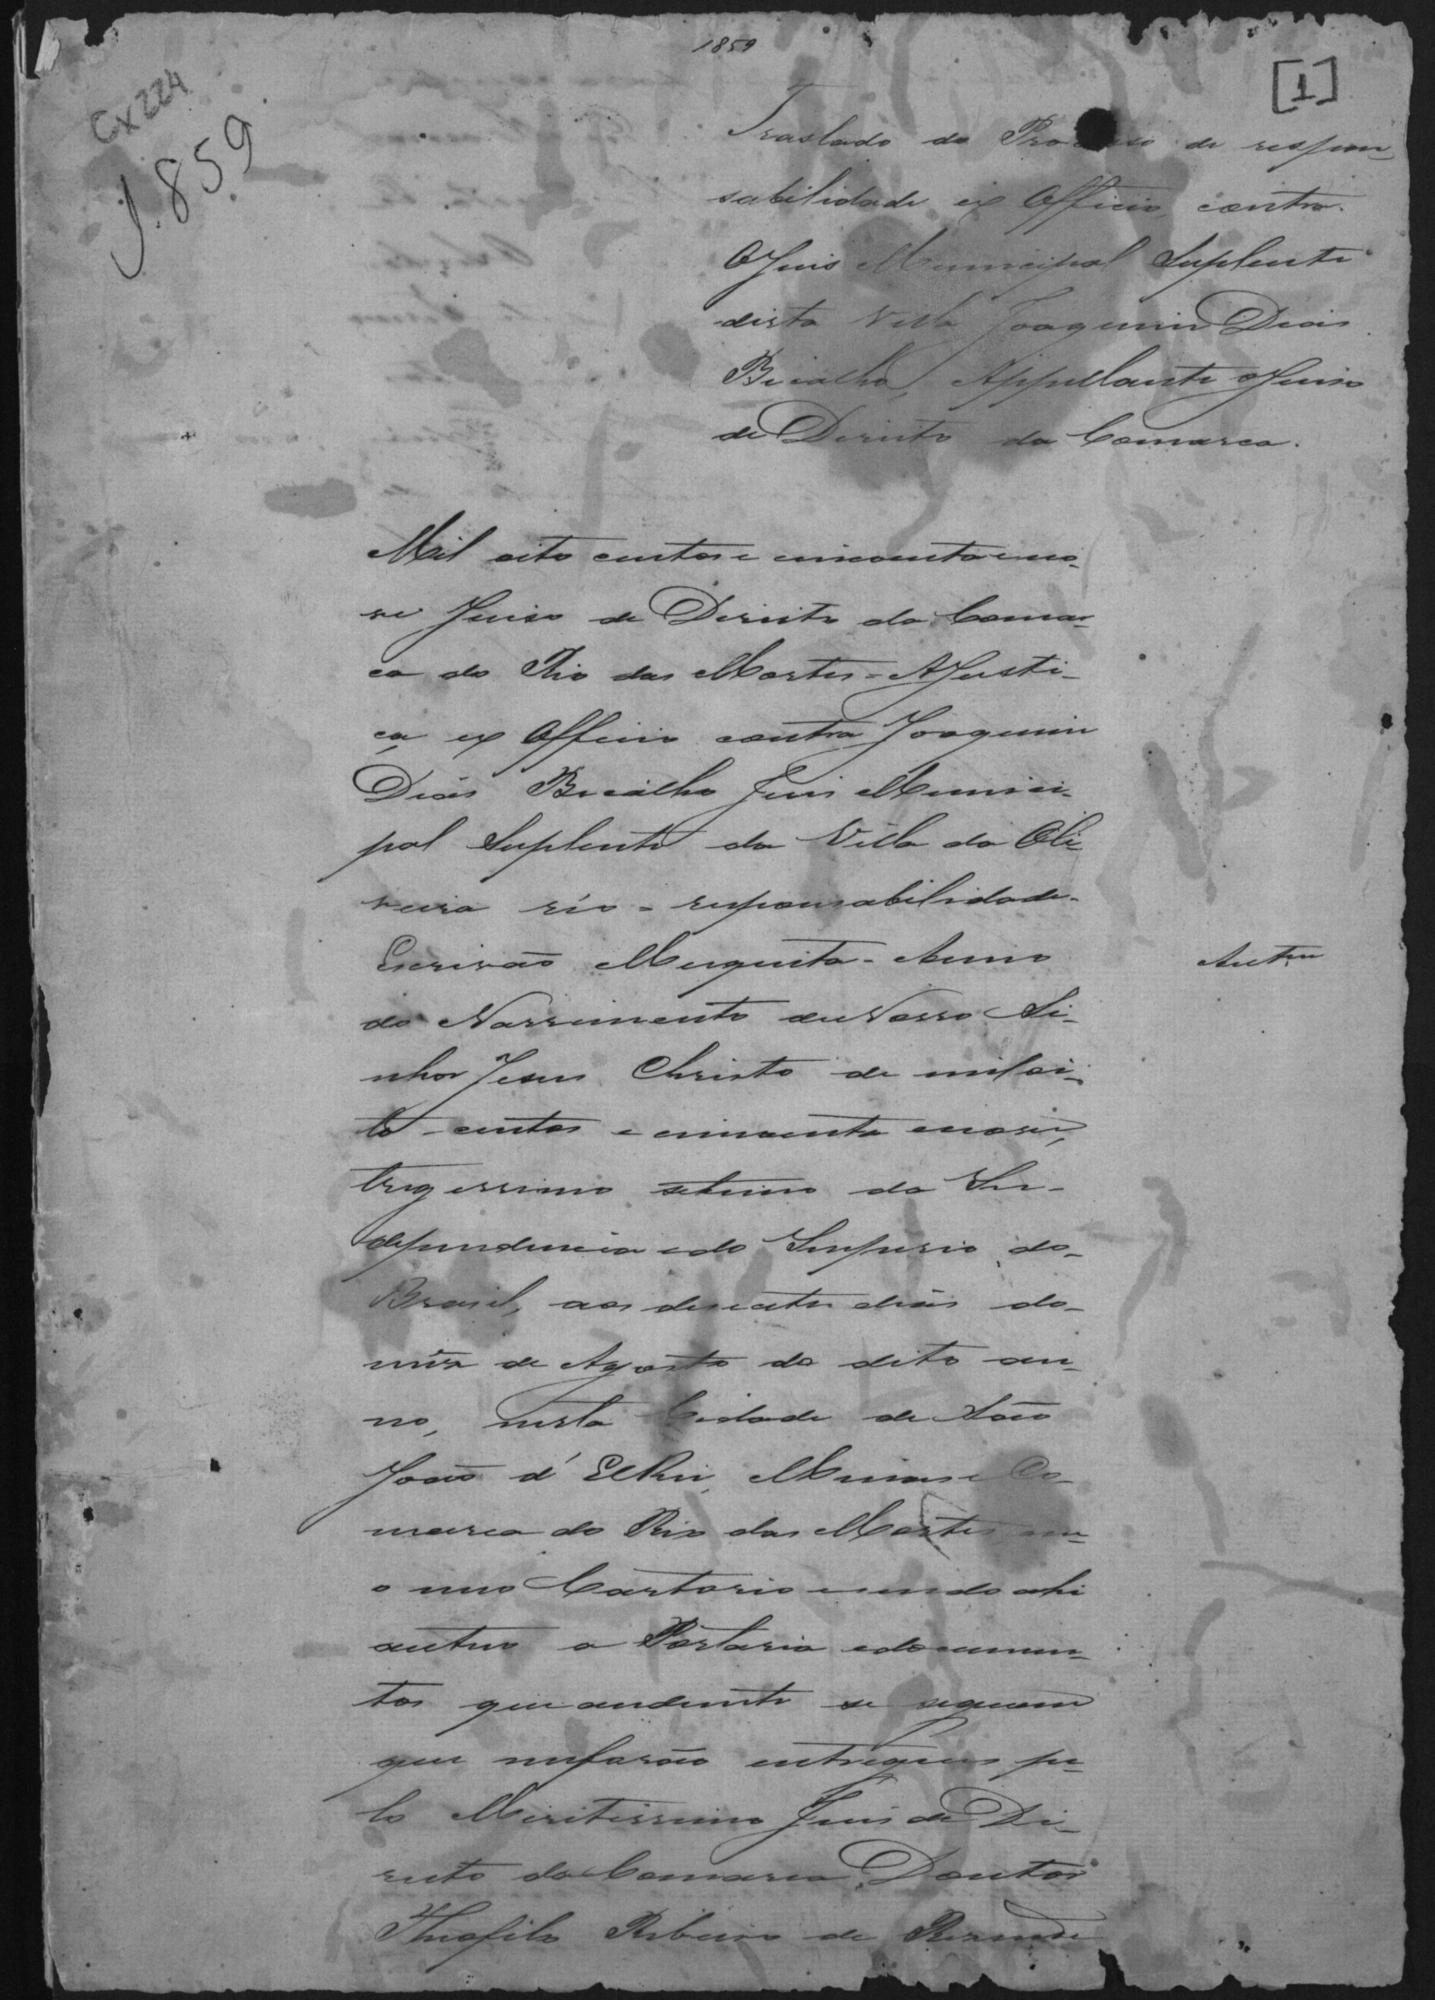 1859
[1]
Cx 224
J. 859
Traslado do Processo de respon-
sabilidade ex Officio contra
O Juis Municipal Suplente
desta Villa Joaquim Dias
Bicalho, Appellante o Juiso
de Direito da Comarca.
Mil oito centos e cincoenta e no-
ve Juiso de Direito da Comar-
ca do Rio das Mortes = A Justi-
ça ex Officio contra Joaquim
Dias Bicalho Juis Munici-
pal Suplente da Villa da Oli-
veira réo = responsabilidade.
Escrivão Mesquita = Anno
do Nascimento de Nosso Si-
nhor Jesus Christo de mil oi-
to centos e cincoenta e nove,
trigessimo setimo da In-
dependencia e do Imperio do
Brasil, aos desecete dias do
mês de Agosto do dito an-
no, nesta Cidade de São
João d'El Rei, Minas e Co-
marca do Rio das Mortes em
o meo Cartorio e sendo ahi
autuo a Portaria e documen-
tos que andiante se seguem
que me farão entregues pe-
lo Meritissimo Juis de Di-
reito da Comarca Doutor
Theofilo Ribeiro de Resende
Autu